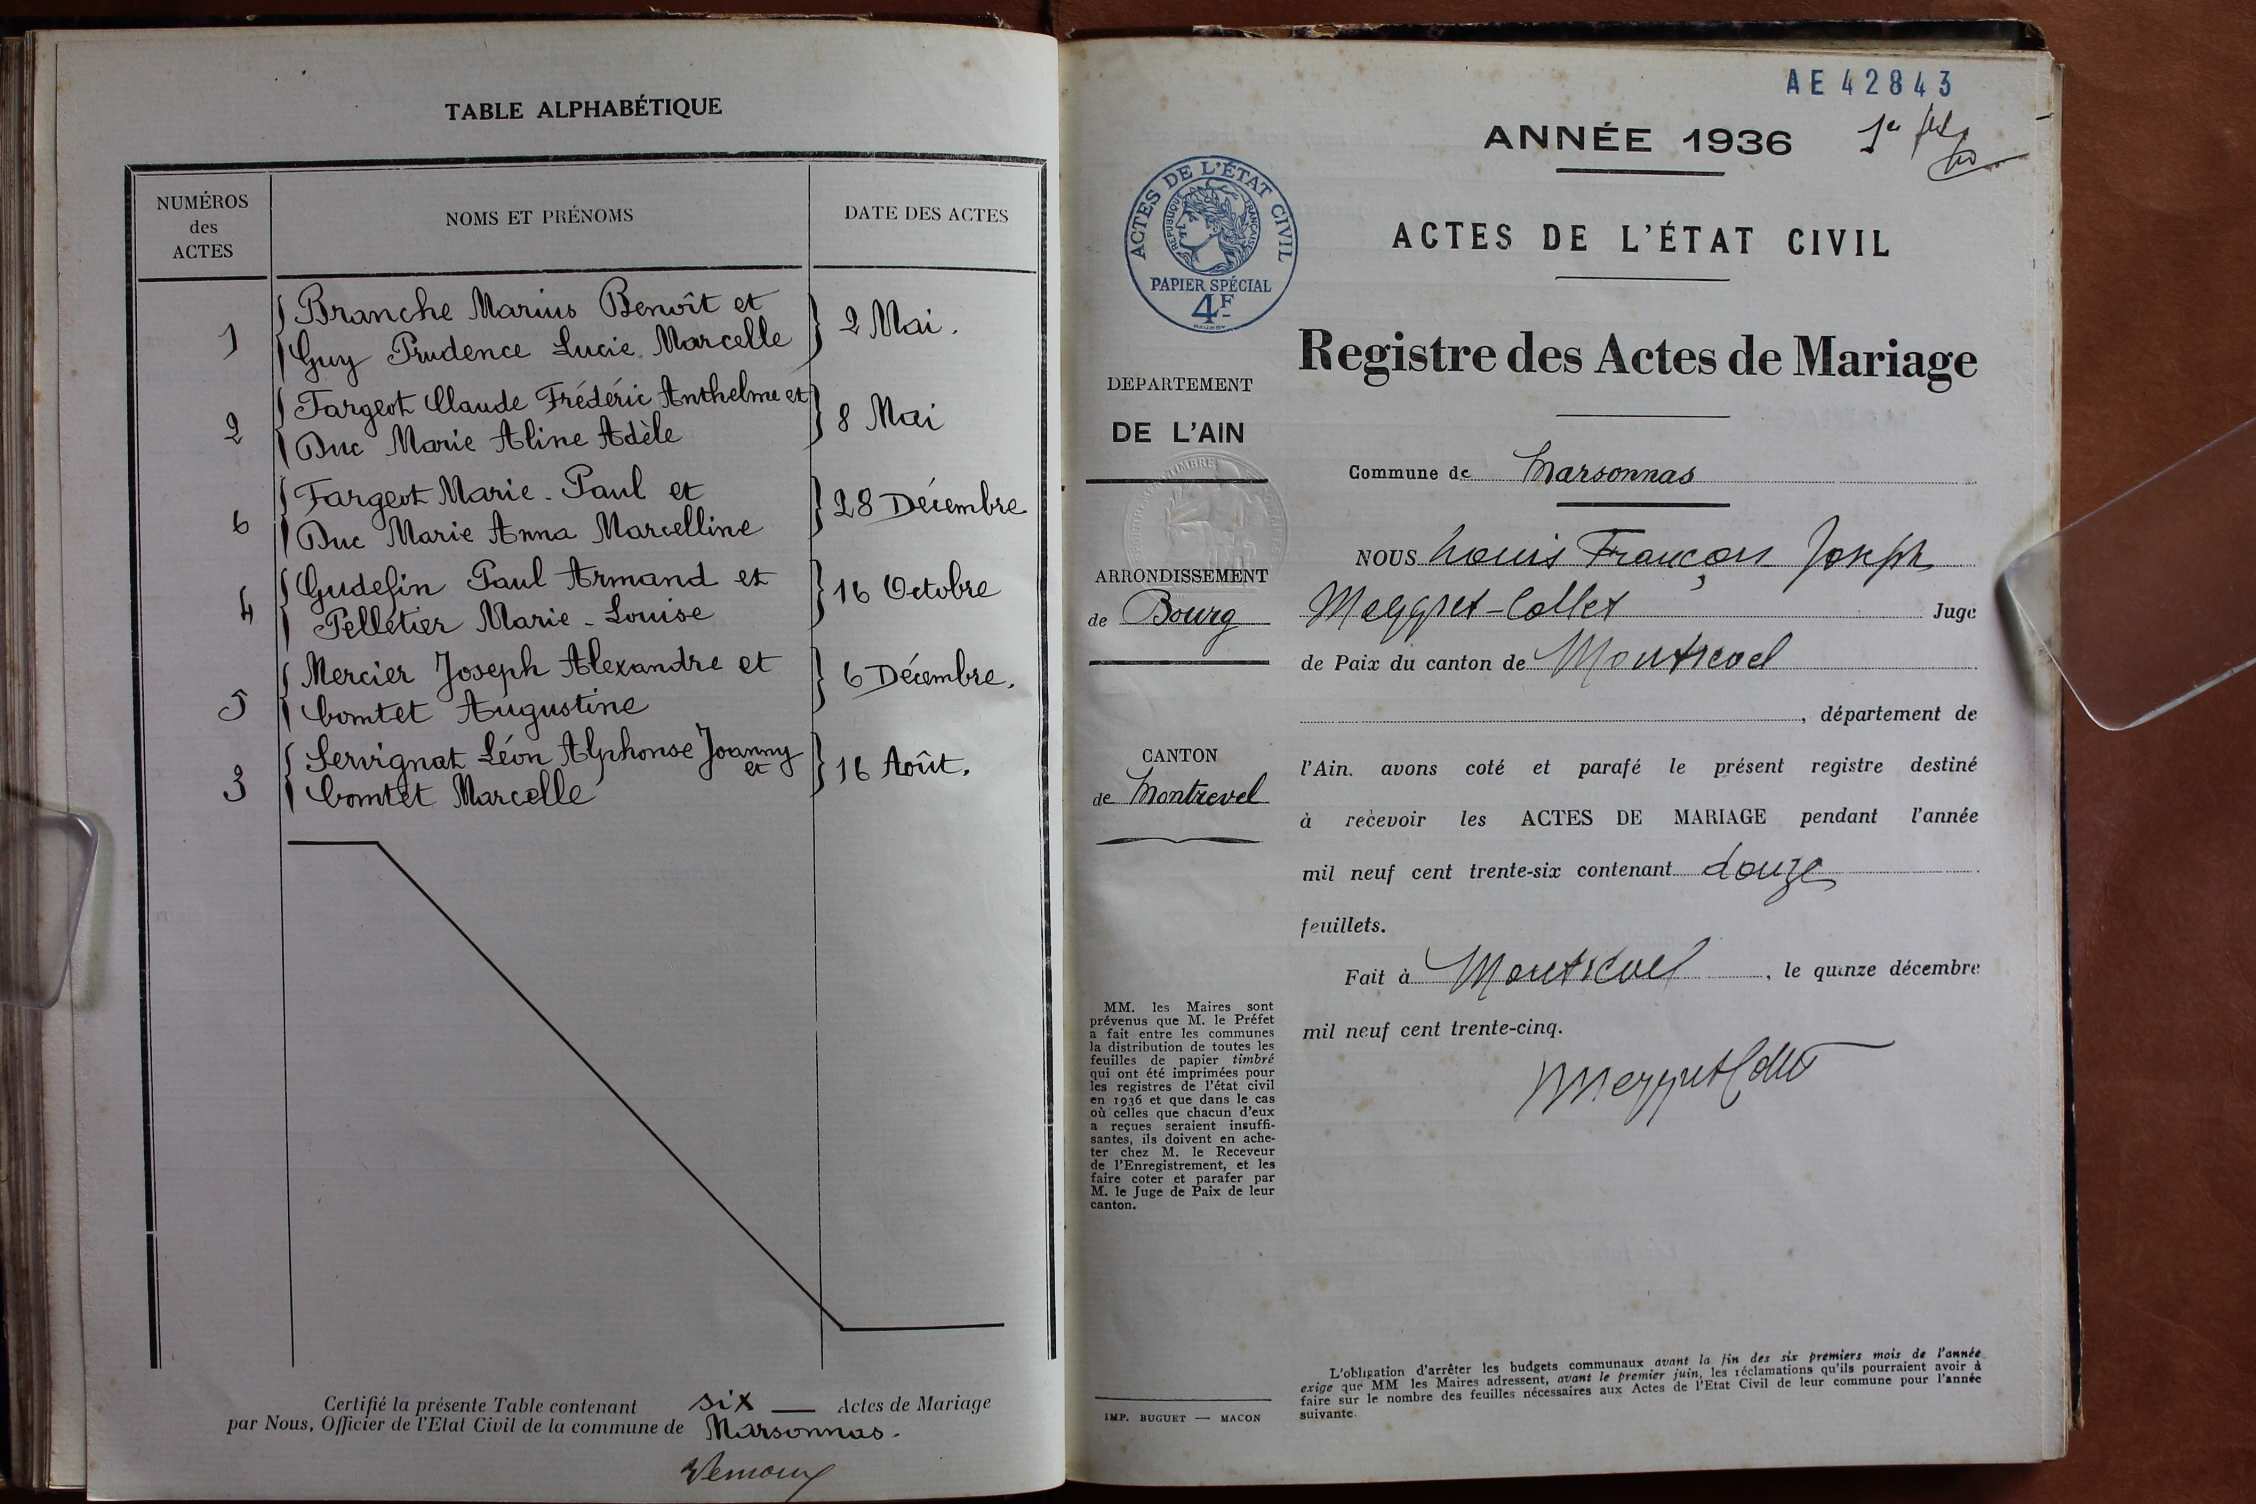 TABLE ALPHABÉTIQUE
NUMÉROS
des
ACTES
NOMS ET PRÉNOMS
DATE DES ACTES
1
Branche Marius Benoît et
Guy Prudence Lucie Marcelle
2 Mai.
2
Fargeot Claude Frédéric Anthelme et
Duc Marie Aline Adèle
8 Mai
6
Fargeot Marie-Paul et
Duc Marie Anna Marcelline
28 Décembre
4
Gudefin Paul Armand et
Pelletier Marie-Louise
16 Octobre
5
Mercier Joseph Alexandre et
Comtet Augustine
6 Décembre.
3
Servignat Léon Alphonse Joanny
et
Comtet Marcelle
16 Août.
Certifié la présente Table contenant six — Actes de Mariage
par Nous, Officier de l'Etat Civil de la commune de Marsonnas.
AE 42843
ANNÉE 1936
ACTES DE L'ÉTAT CIVIL
RÉPUBLIQUE FRANÇAISE
PAPIER SPÉCIAL
4F
ACTES DE L'ÉTAT CIVIL
Registre des Actes de Mariage
DEPARTEMENT
DE L'AIN
Commune de Marsonnas
NOUS Louis François Joseph
ARRONDISSEMENT
de Bourg
Meygret-Collet Juge
de Paix du canton de Montrevel
, département de
CANTON
de Montrevel
l'Ain. avons coté et parafé le présent registre destiné
à recevoir les ACTES DE MARIAGE pendant l'année
mil neuf cent trente-six contenant douze
feuillets.
Fait à Montrevel, le quinze décembre
mil neuf cent trente-cinq.
MeygretCollet
MM. les Maires sont
prévenus que M. le Préfet
a fait entre les communes
la distribution de toutes les
feuilles de papier timbré
qui ont été imprimées pour
les registres de l'état civil
en 1936 et que dans le cas
où celles que chacun d'eux
a reçues seraient insuffi-
santes, ils doivent en ache-
ter chez M. le Receveur
de l'Enregistrement, et les
faire coter et parafer par
M. le Juge de Paix de leur
canton.
IMP. BUGUET — MACON
L'obligation d'arrêter les budgets communaux avant la fin des six premiers mois de l'année
exige que MM les Maires adressent, avant le premier juin, les réclamations qu'ils pourraient avoir à
faire sur le nombre des feuilles nécessaires aux Actes de l'Etat Civil de leur commune pour l'année
suivante.